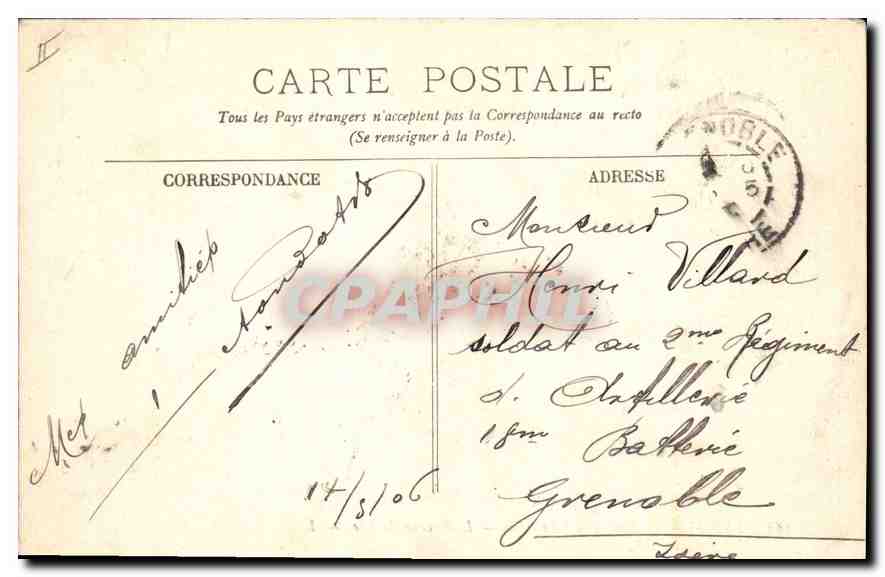 II
CARTE POSTALE
Tous les Pays étrangers n'acceptent pas la Correspondance au recto
(Se renseigner à la Poste).
CORRESPONDANCE
Mes amitiés
14/5/06
ADRESSE
NOBLE
Monsieur
Henri Villard
soldat au 2me Régiment
d. Artillerie
18me Batterie
Grenoble
Isère
CPAPHIL